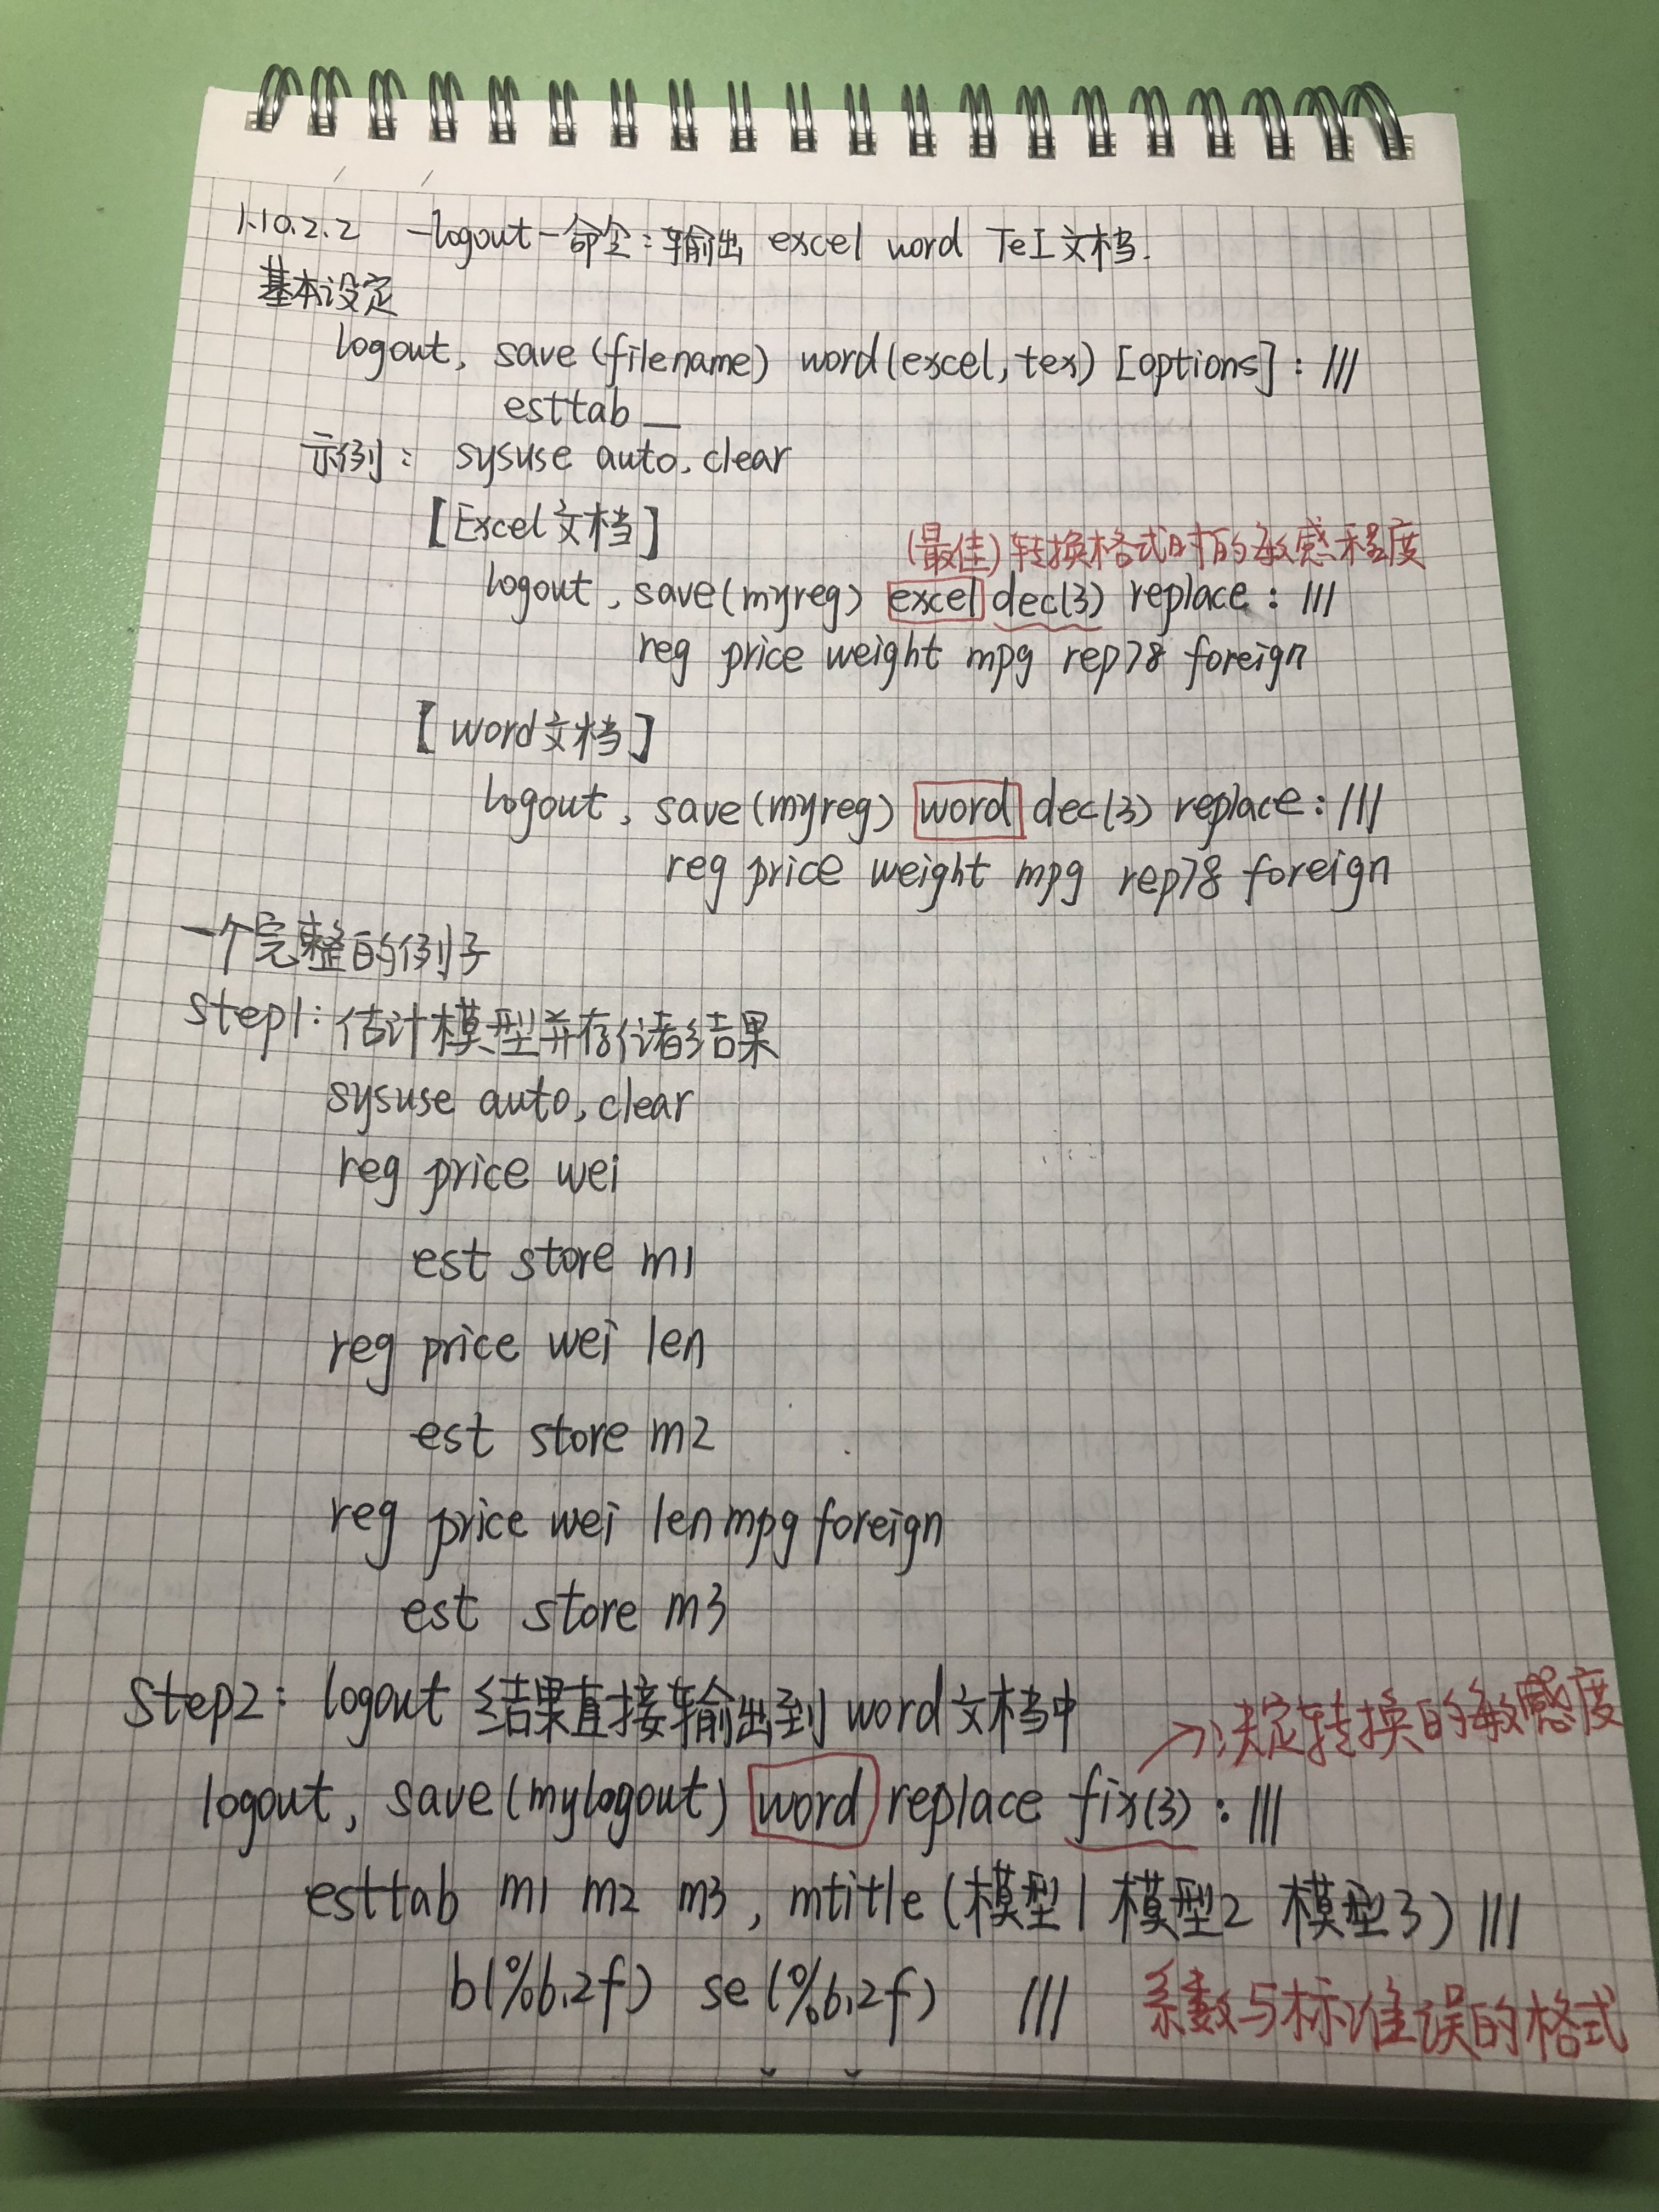 1.10.2.2 -logout-命令:输出 excel word TeI文档.
基本设定
logout, save(filename) word(excel, tex) [options]: ///
esttab __
示例: sysuse auto, clear
【Excel文档】
(最佳)转换格式时的敏感程度
logout, save(myreg) excel dec(3) replace: ///
reg price weight mpg rep78 foreign
【word文档】
logout, save(myreg) word dec(3) replace: ///
reg price weight mpg rep78 foreign
一个完整的例子
step1:估计模型并存储结果
sysuse auto, clear
reg price wei
est store m1
reg price wei len
est store m2
reg price wei len mpg foreign
est store m3
Step2: logout 结果直接输出到 word文档中
→决定转换的敏感度
logout, save(mylogout) word replace fix(3): ///
esttab m1 m2 m3, mtitle(模型1 模型2 模型3) ///
b(%6.2f) se(%6.2f) /// 系数与标准误的格式